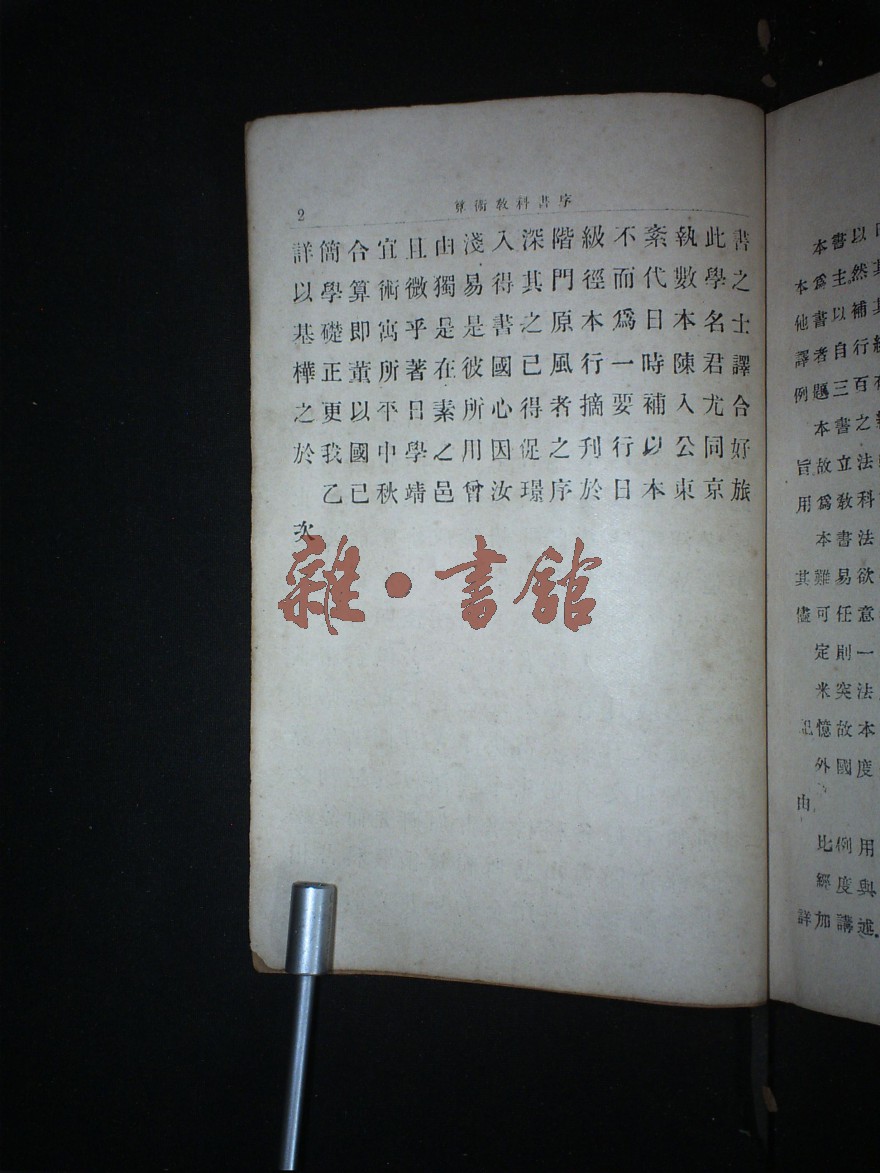 2
算術教科書序
詳簡合宜且由淺入深階級不紊執此書
以學算術微獨易得其門徑而代數學之
基礎即寓乎是是書之原本爲日本名士
樺正董所著在彼國已風行一時陳君譯
之更以平日素所心得者摘要補入尤合
於我國中學之用因促之刊行以公同好
乙已秋靖邑曾汝璟序於日本東京旅
次
雜·書館
本書以
本爲主然其
他書以補其
譯者自行
例題三百
本書之
旨故立法
用爲教科
本書法
其難易欲
儘可任意
定則一
米突法
記憶故本
外國度
由
比例用
經度與
詳加講述